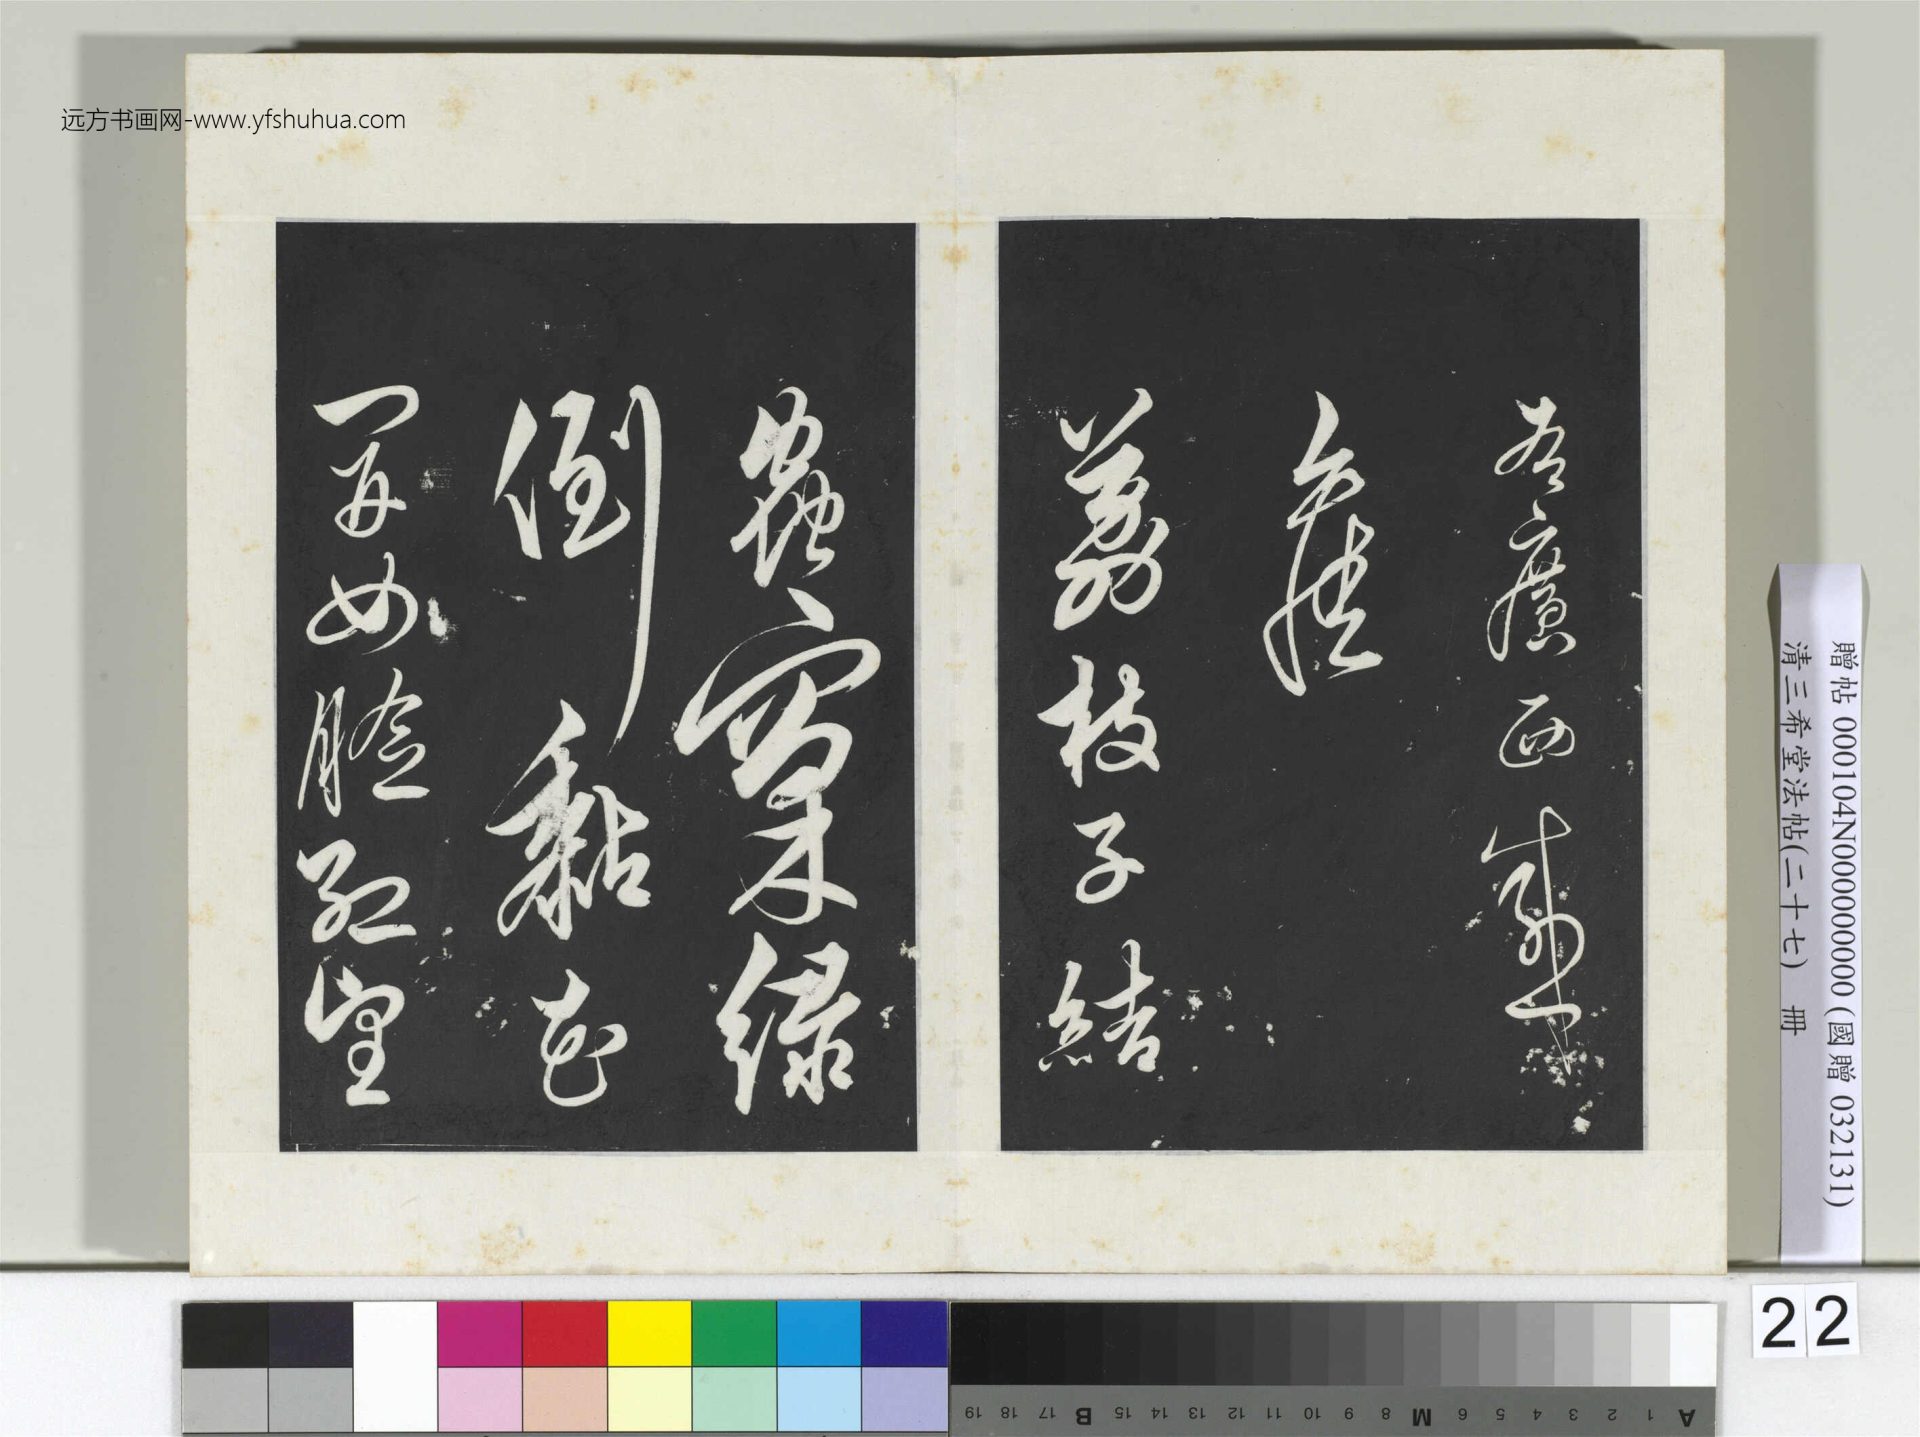 廣西感
舊
荔枝子結
蟲窠綠
倒黏花
開女臉紅望
远方书画网-www.yfshuhua.com
贈帖 000104N000000000 (國贈 032131)
清三希堂法帖(二十七) 冊
22
A 1 2 3 4 5 6 M 8 9 10 11 12 13 14 15 B 17 18 19